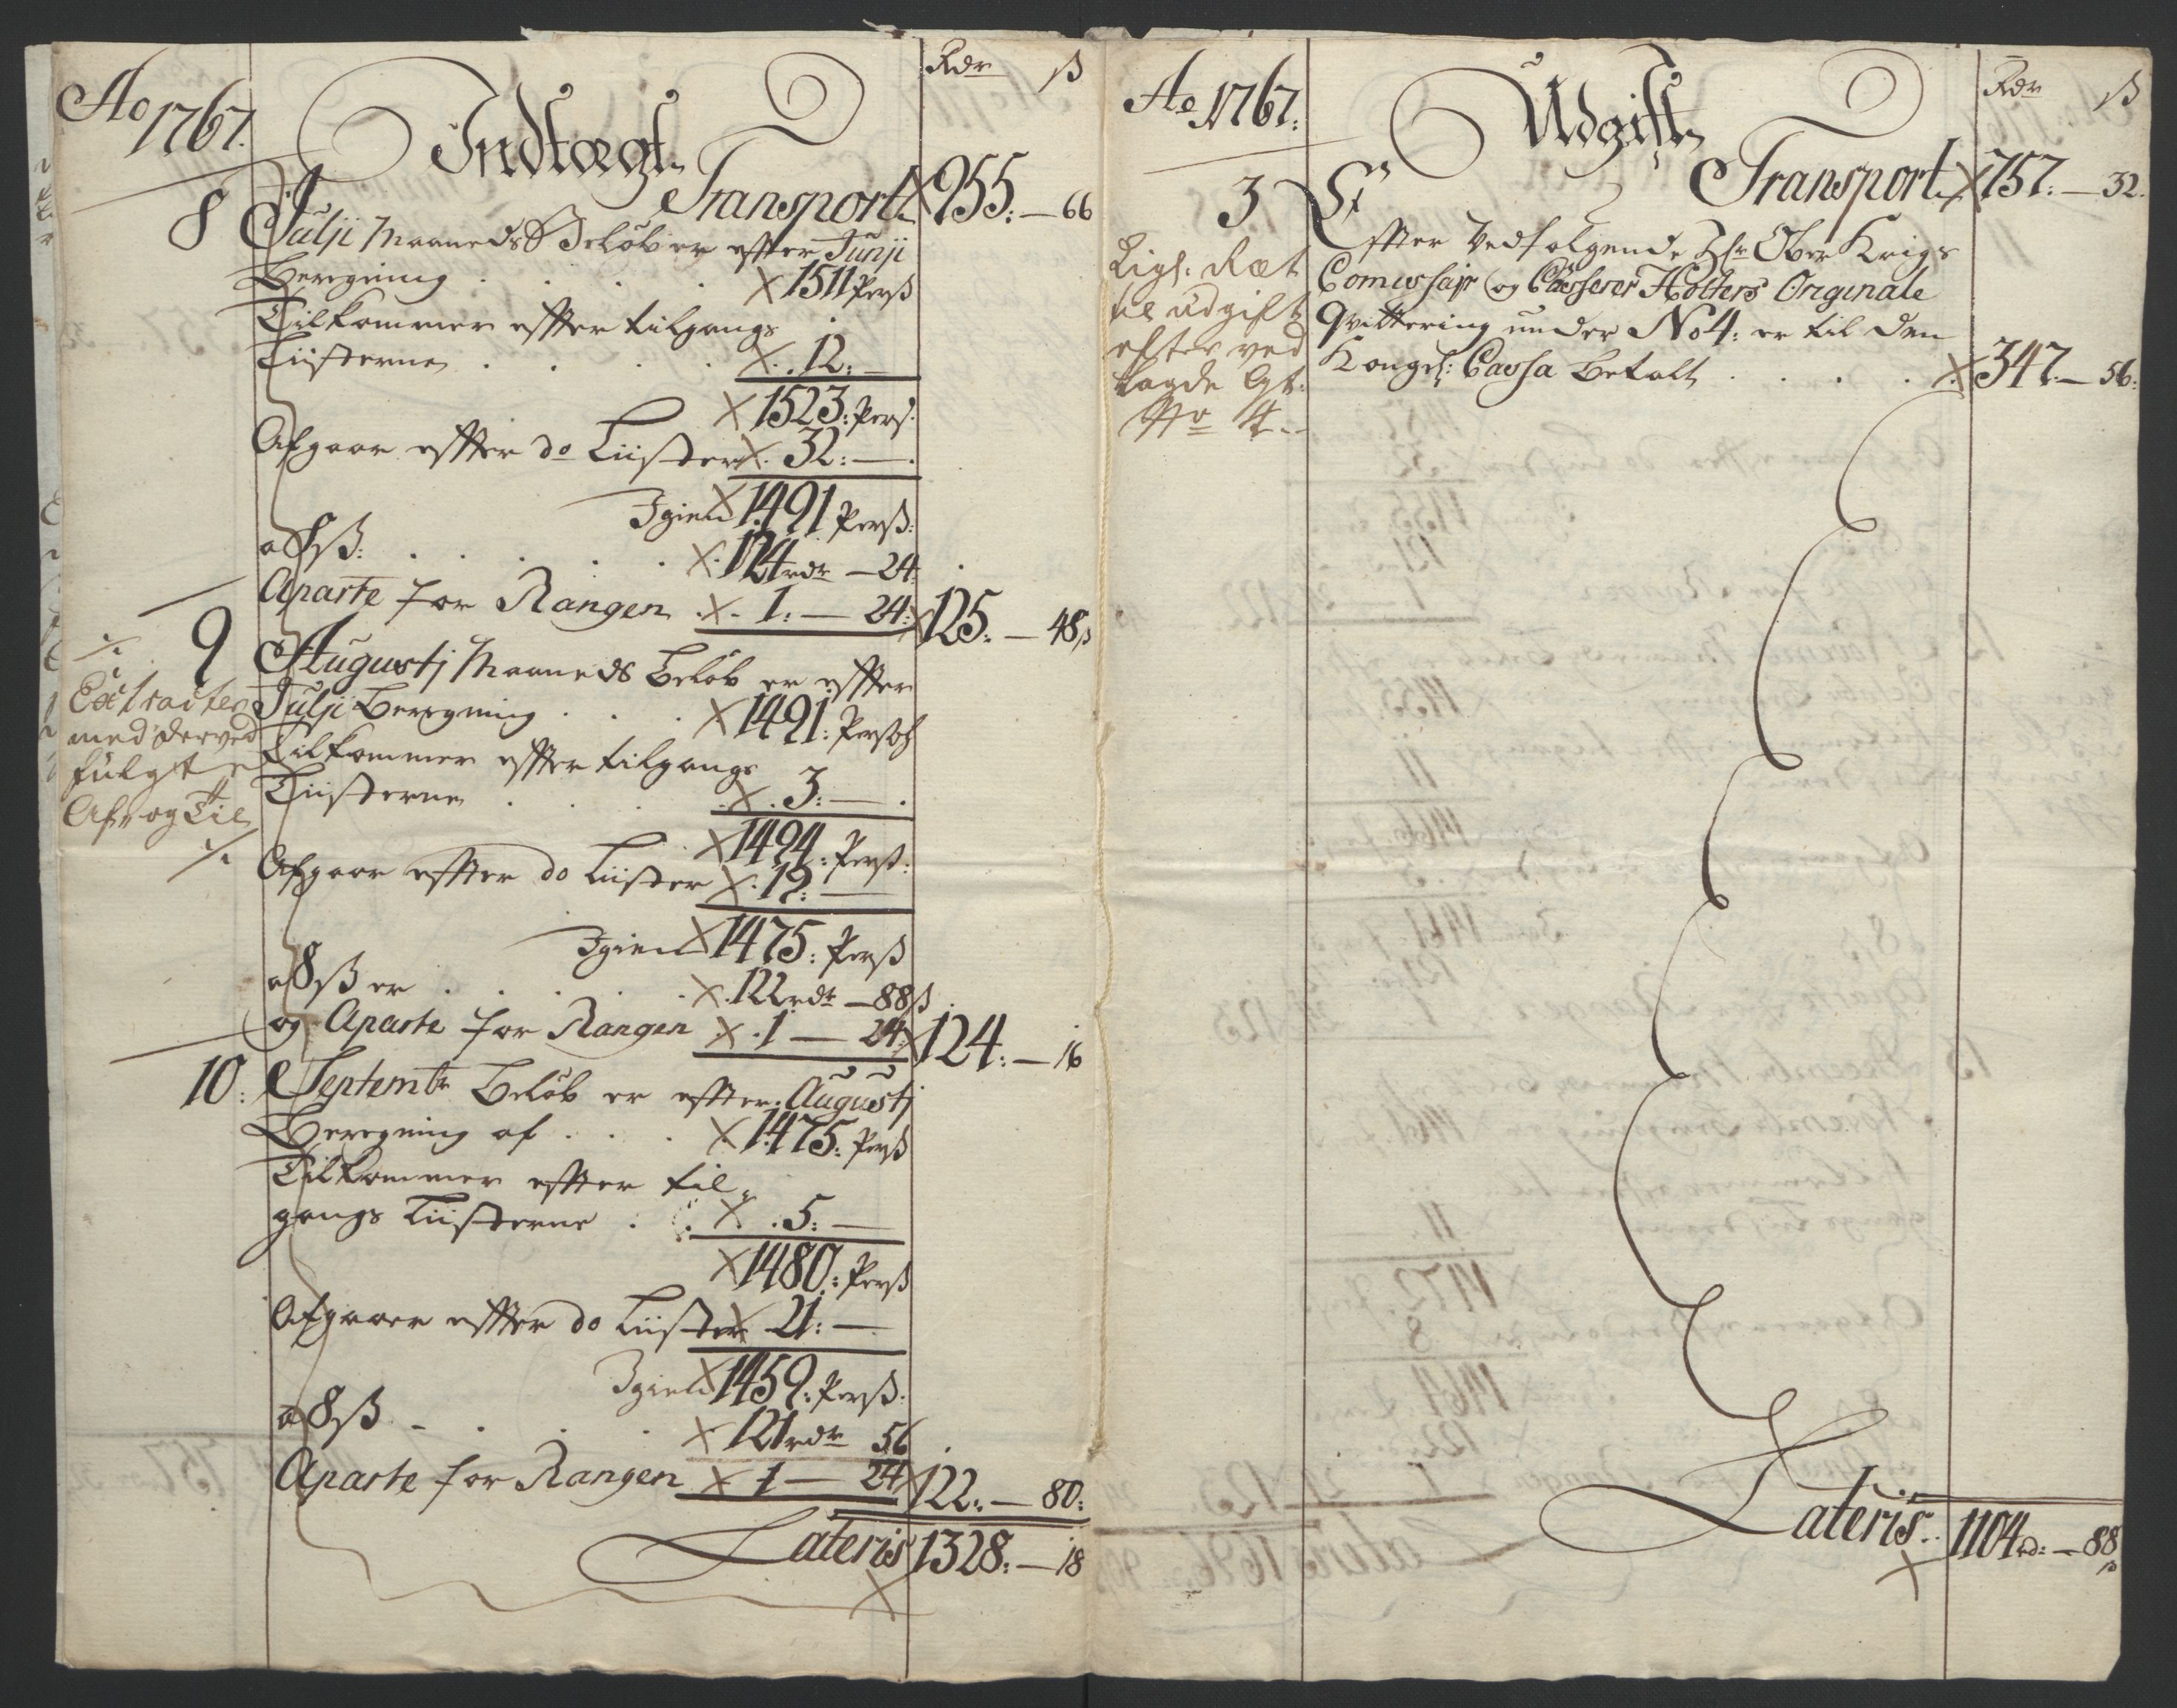 Ao 1767.
Indtægt
Rdr ß
Transport 955:—66
8 Julji Maaneds Beløb er effter Junji
Beregning . . . . 1511 Perß
Tilkommer effter tilgangs
Liisterne . . . . 12:—
1523: Perß:
Afgaar effter do Liister 32:—
Igien 1491 Perß:
a 8 ß: . . . . . 124 rdr —24
Aparte for Rangen . 1:—24: 125:—48 ß
9 Augustj Maaneds Beløb er effter
Julji Beregning . . . 1491: Persoh
Tilkommer effter tilgangs
Liisterne . . . 3:—
1494: Perß:
Afgaar effter do Liister 19:—
Igien 1475: Perß
a 8 ß er . . . . . 122 rdr —88 ß
og Aparte for Rangen 1—24: 124:—16
·/·
Extracten
med derved
fulgte
Af- og Til
·/·
10: Septembr Beløb er effter Augustj
Beregning af . . . 1475: Perß
Tilkommer effter til-
gangs Liisterne . . 5:—
1480: Perß
Afgaaer effter do Liister 21:—
Igien 1459: Perß:
a 8 ß . . . . 121 rdr 56
Aparte for Rangen 1—24 122:—80:
Lateris 1328:—18
Ao 1767:
Udgift
Rdr ß
Transport 757:—32.
3 Effter Vedfølgende Hr Ober Krigs
Comissair og Casserer Holters Originale
Qvittering under No 4: er til den
Kongel: Cassa Betalt . . . . 347—56:
Rigt: Ræt
til udgift
efter ved
lagde Qt:
No 4.
Lateris . 1104 rd:—88 ß